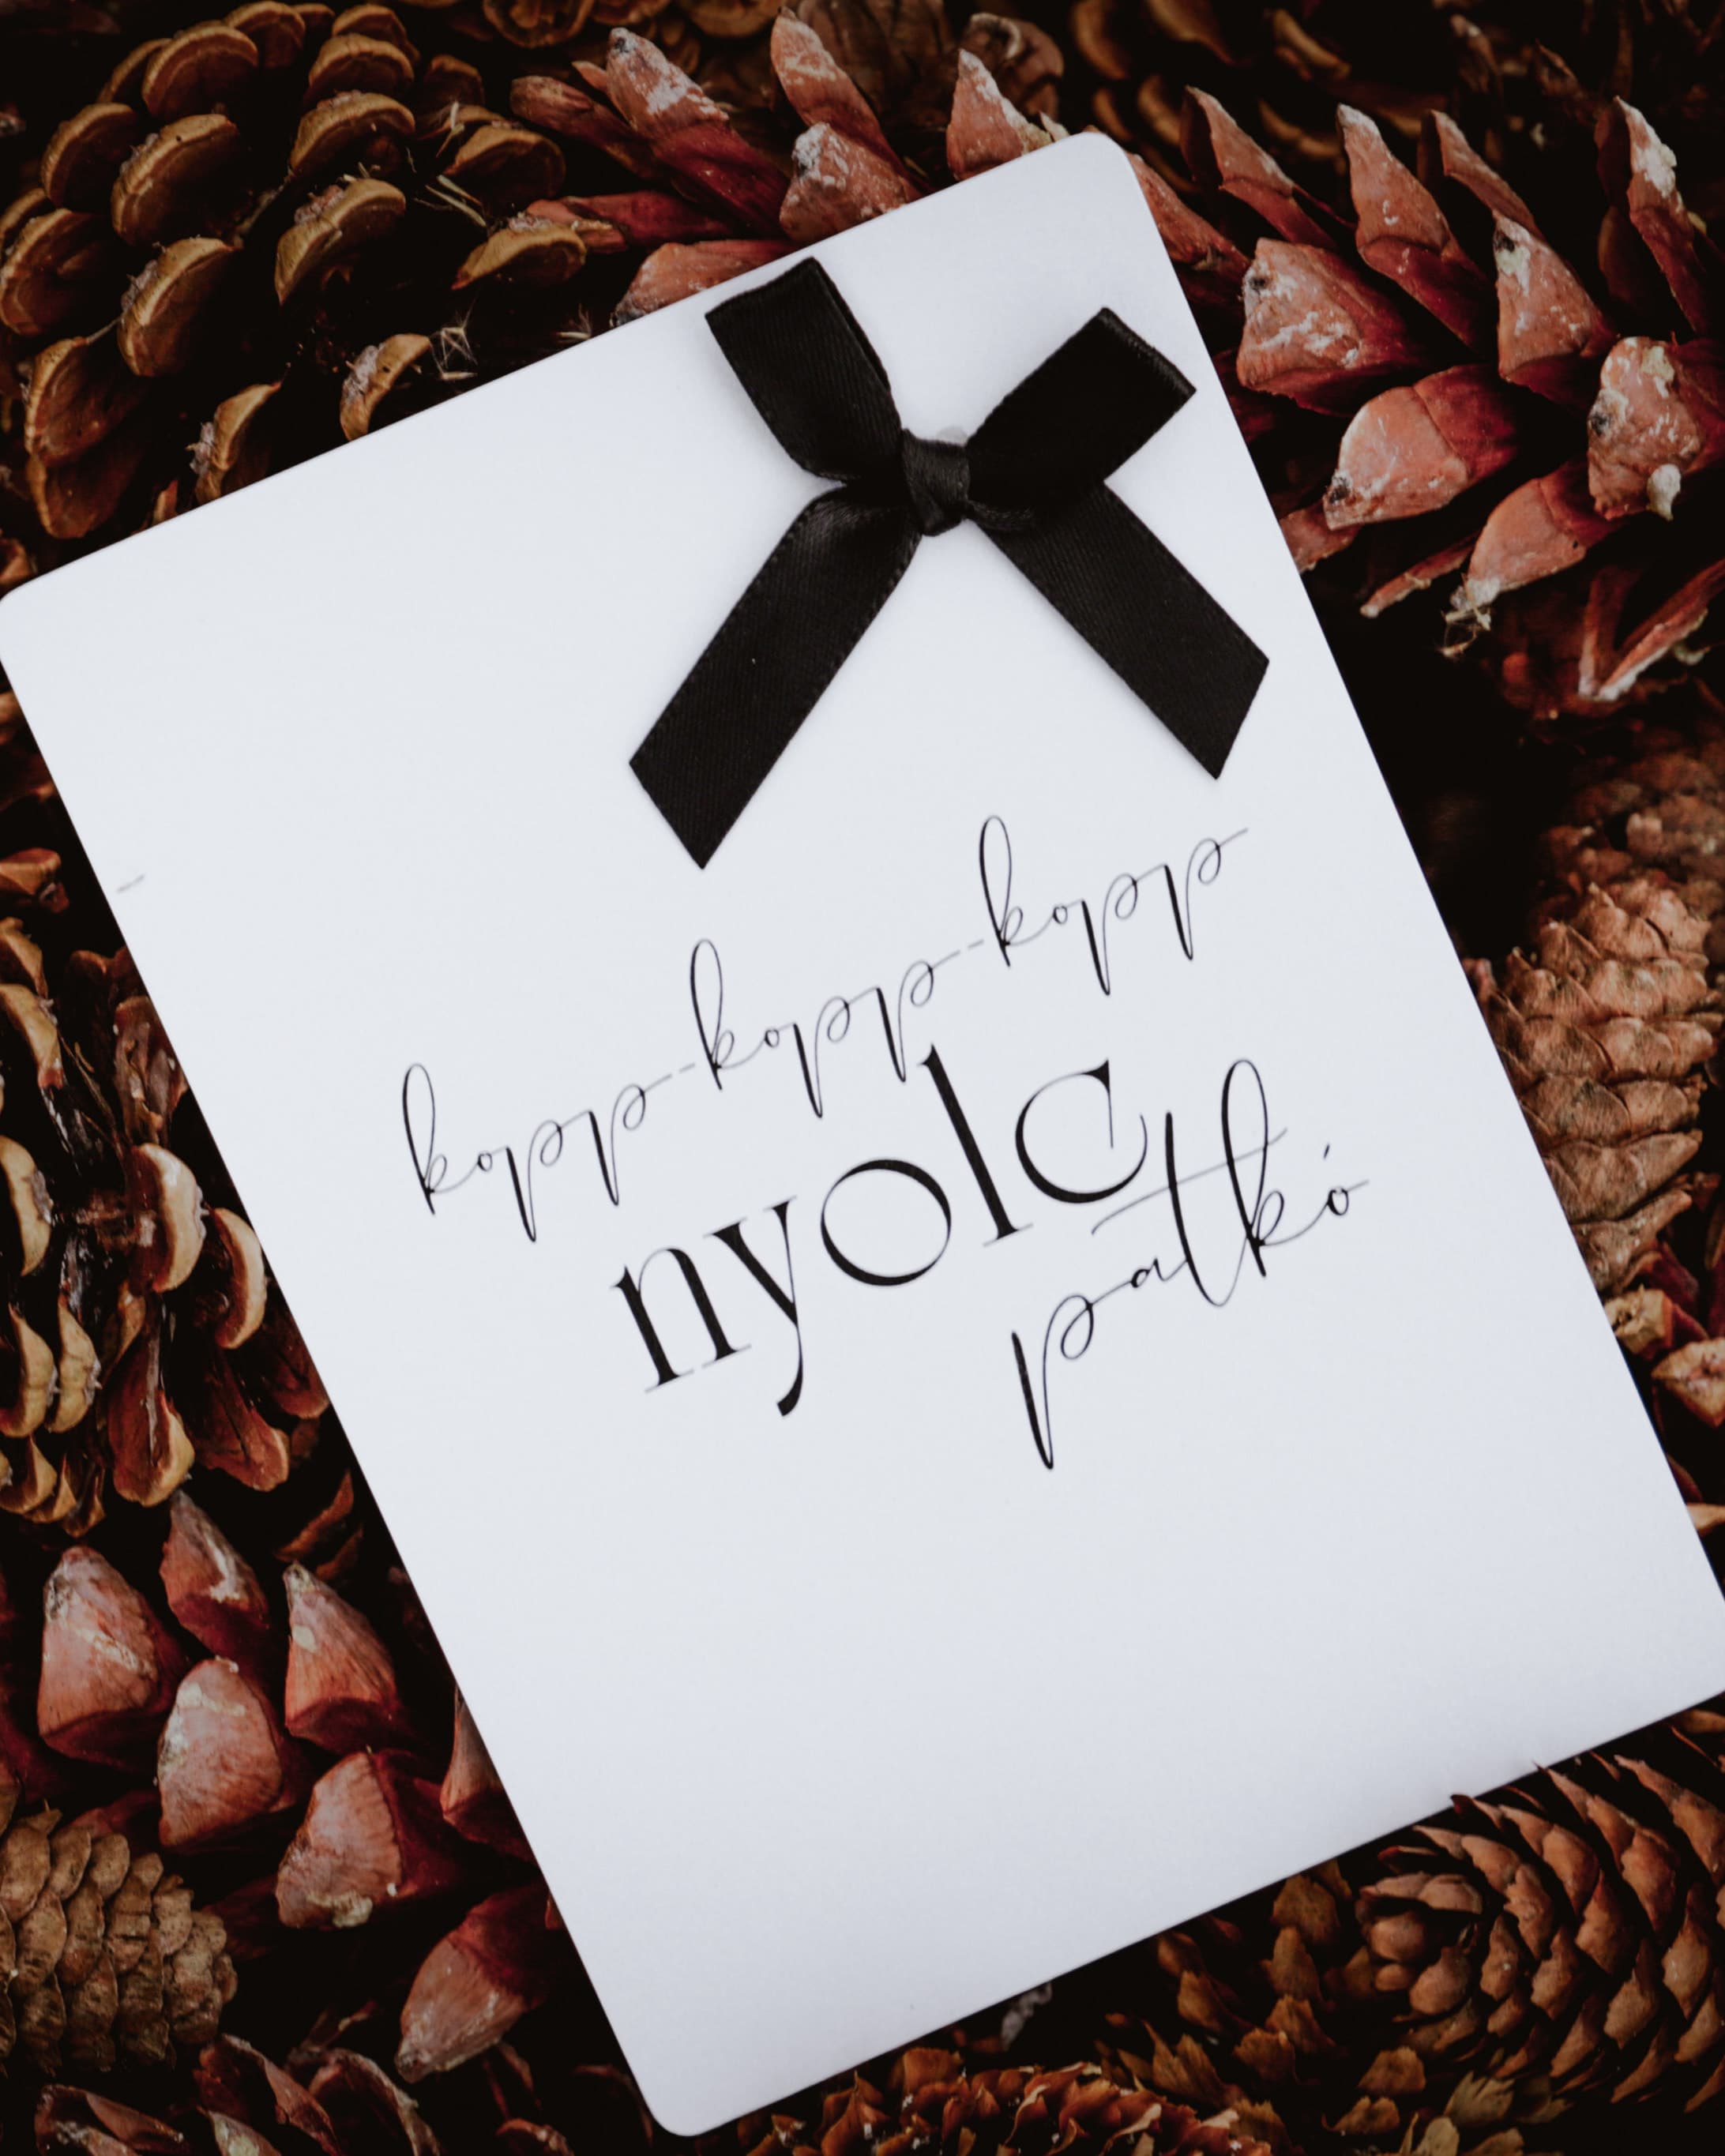 kopp-kopp-kopp
nyolc
patkó